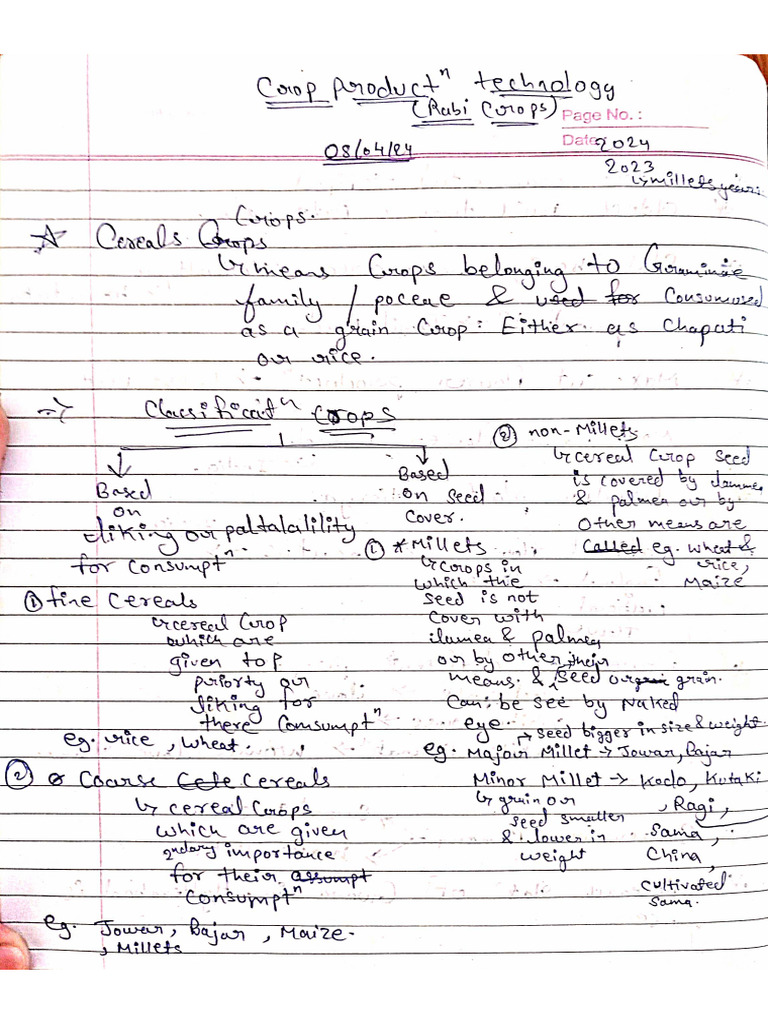 Crop productⁿ technology
(Rabi Crops)
Page No. :
Date 2024
08/04/24
2023
↳ millets year.
Crops.
☆ Cereals Crops
↳ means Crops belonging to Graminie
family / poceae & used for Consumused
as a grain Crop: Either as Chapati
or rice.
→ Classificatⁿ Crops
Based
on
liking or paltalalility
for consumptⁿ
① fine cereals
↳ cereal Crop
which are
given top
priorty or
liking for
there Comsumptⁿ
eg. rice, wheat.
② Coarse Cete Cereals
↳ cereal Crops
which are given
2ndary importance
for their assumpt
Consumptⁿ
eg. Jowar, Bajar, Maize.
, Millets
Based
on seed
cover.
① * Millets
↳ crops in
which the
seed is not
cover with
ilumea & palmea
or by other
means. & their seed or grain.
Can be see by Naked
eye.
→ seed bigger in size & weight.
eg. Major Millet → Jowar, Bajar
Minor Millet → Kodo, Kutaki
, Ragi,
Sama,
China,
cultivated
sama.
↳ grain or
seed smaller
& lower in
weight
② non-Millets
↳ cereal Crop seed
is covered by ilumea
& palmea or by
Other means are
Called eg. wheat &
rice,
Maize